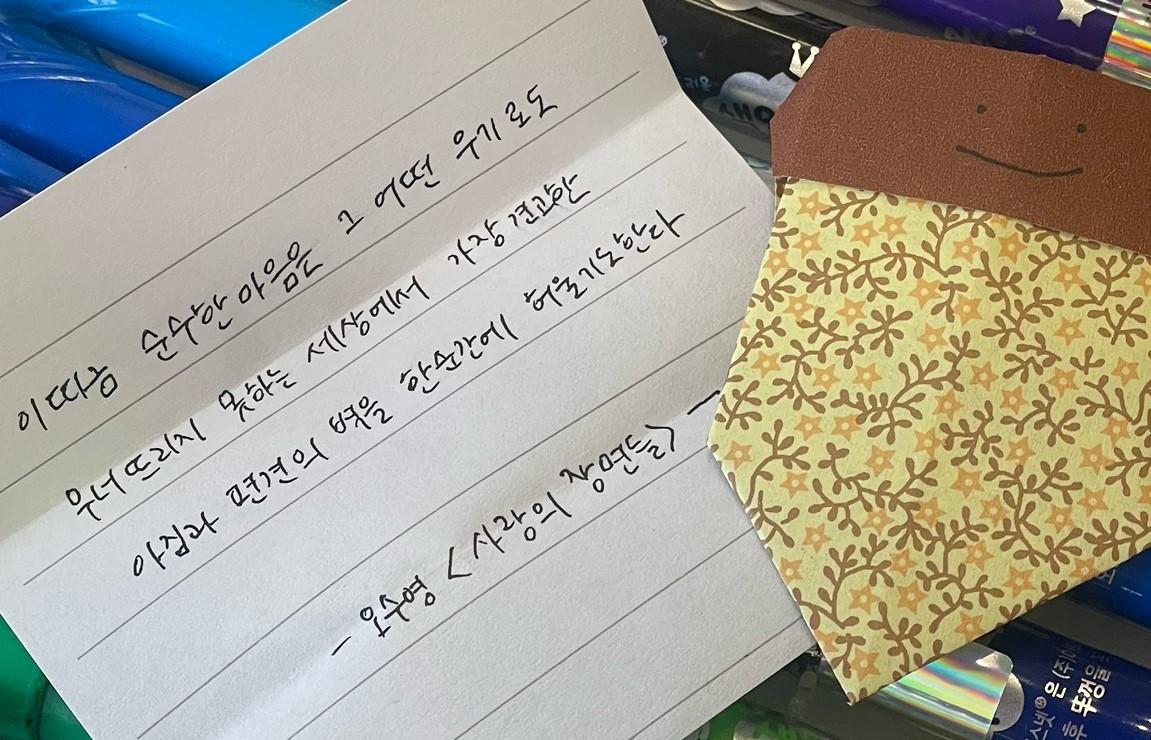 이따금 순수한 마음은 그 어떤 무기로도
무너뜨리지 못하는 세상에서 가장 견고한
아집과 편견의 벽을 한순간에 허물기도한다
- 오수영 <사랑의 장면들> -
후 뚜껑을